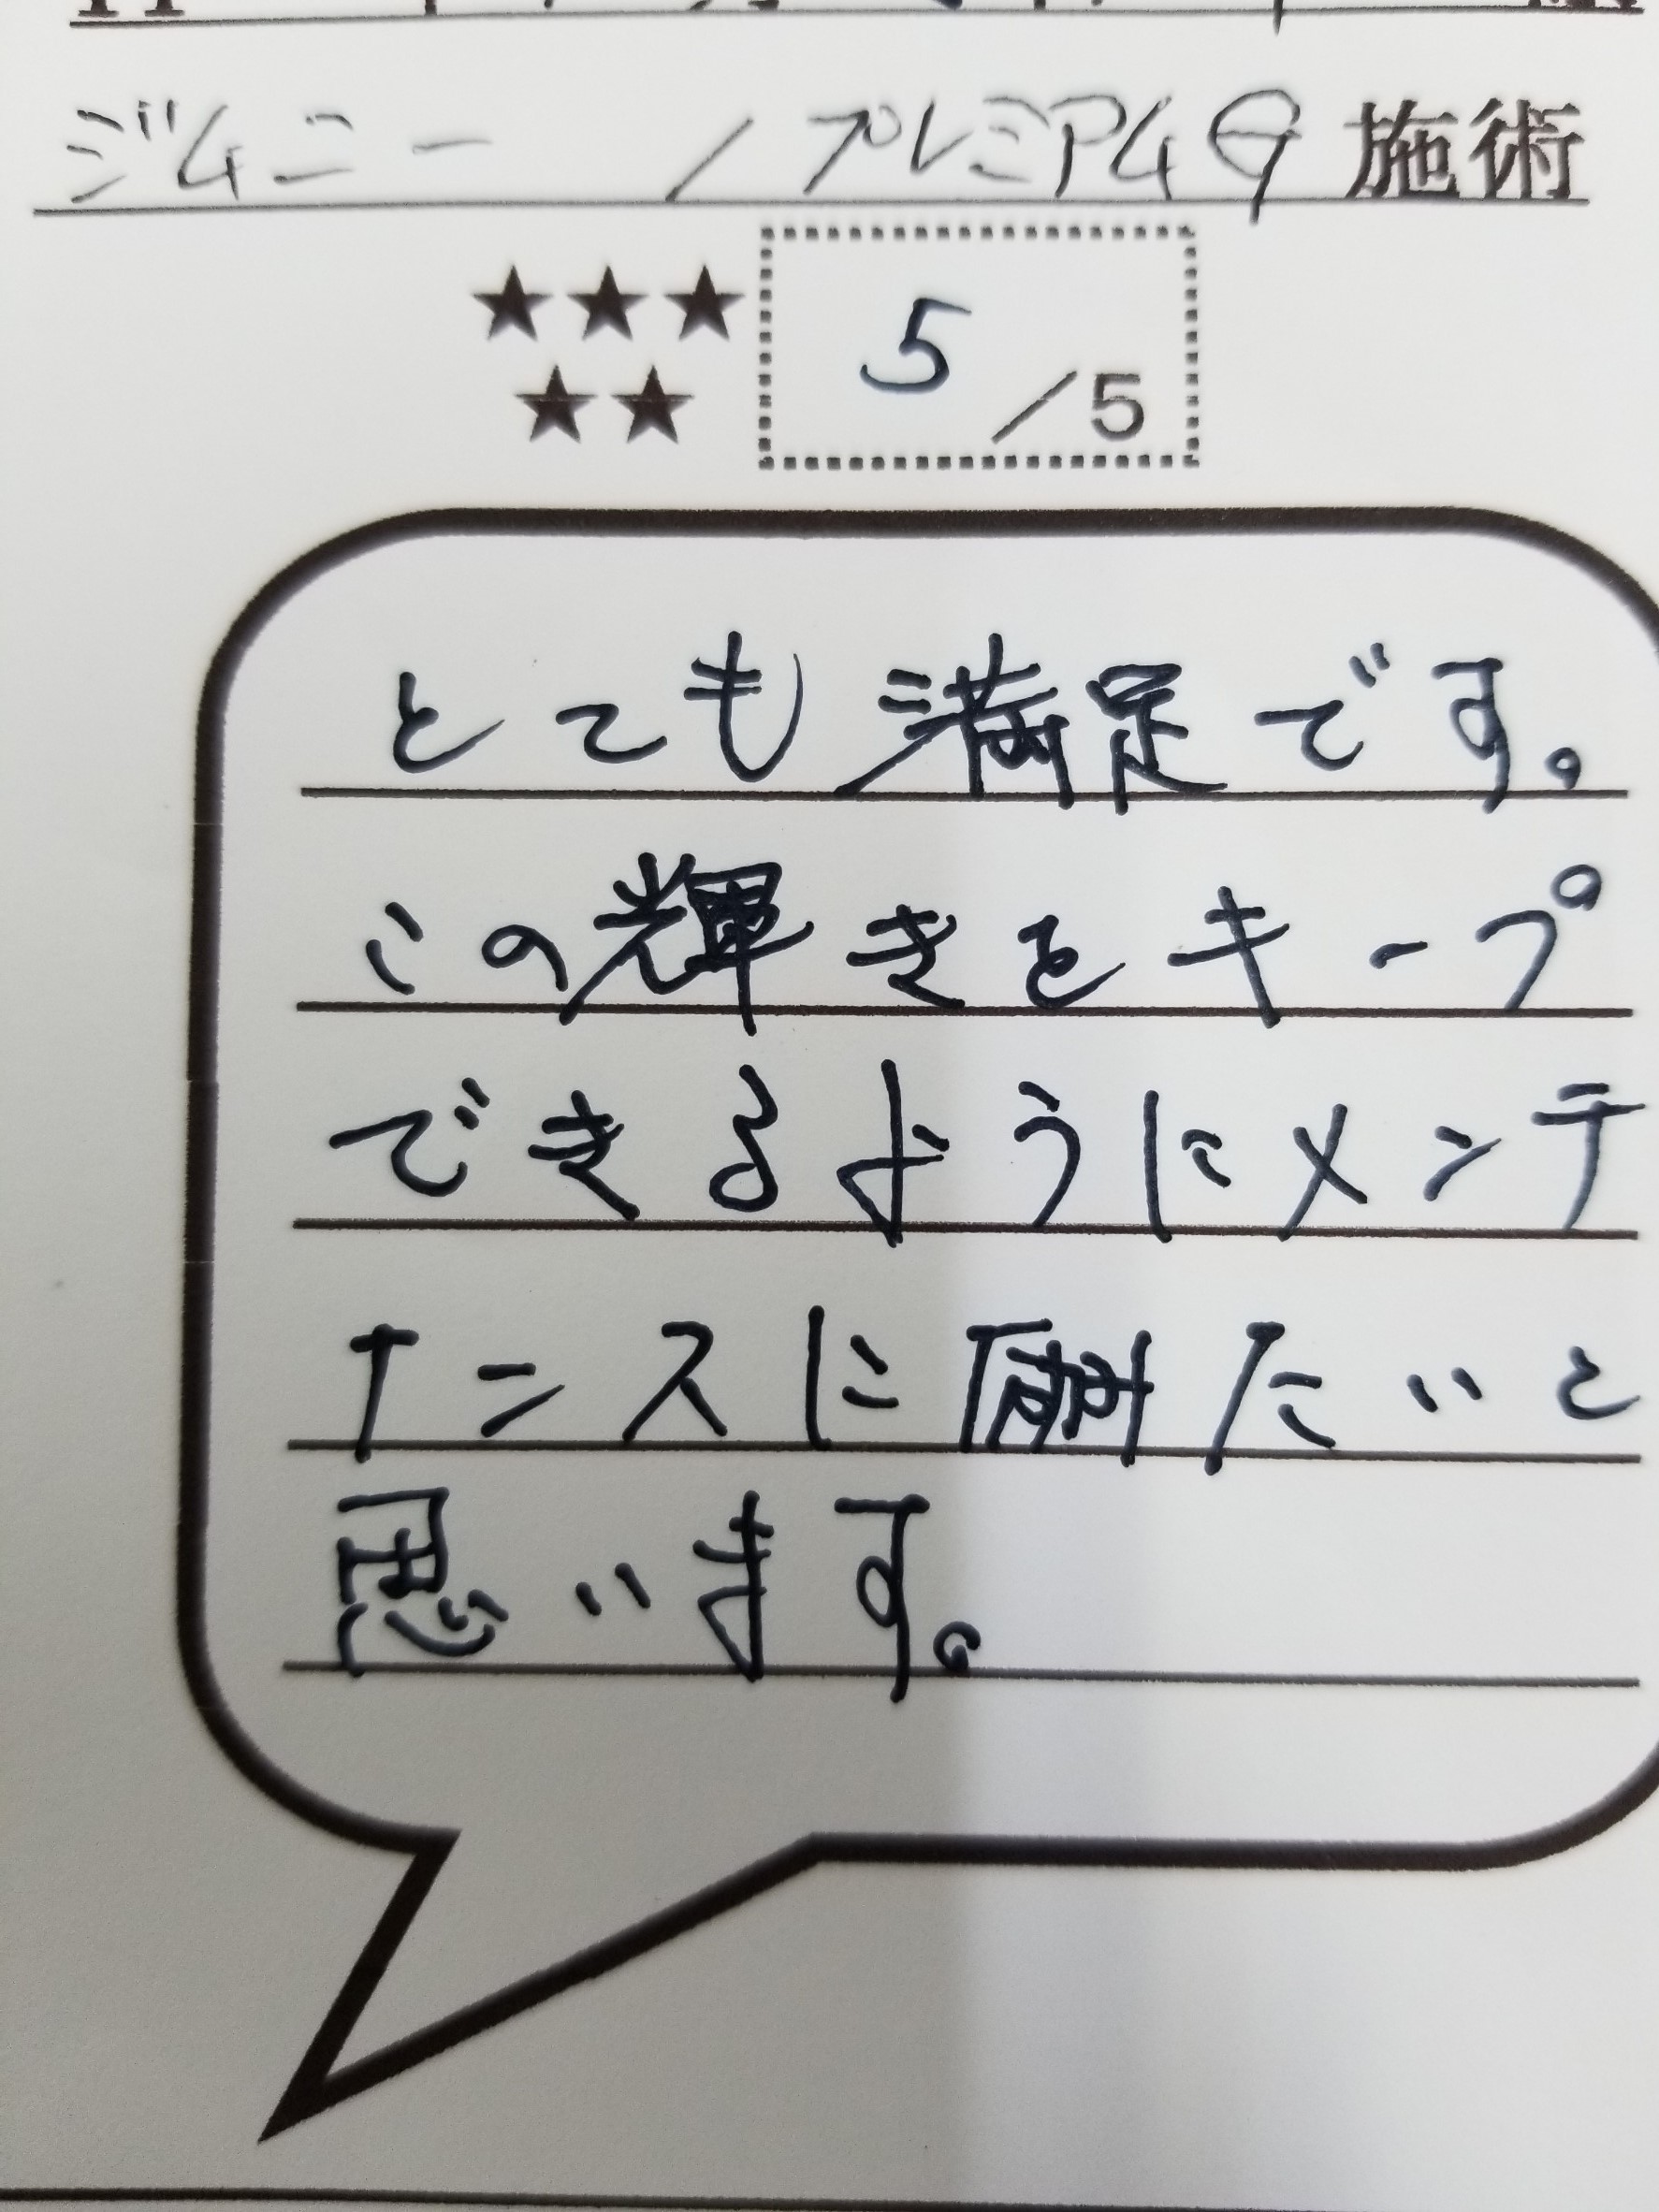 ジムニー / プレミアム 施術
★★★
★★
5/5
とても満足です。
この輝きをキープ
できるようにメンテ
ナンスに励たいと
思います。